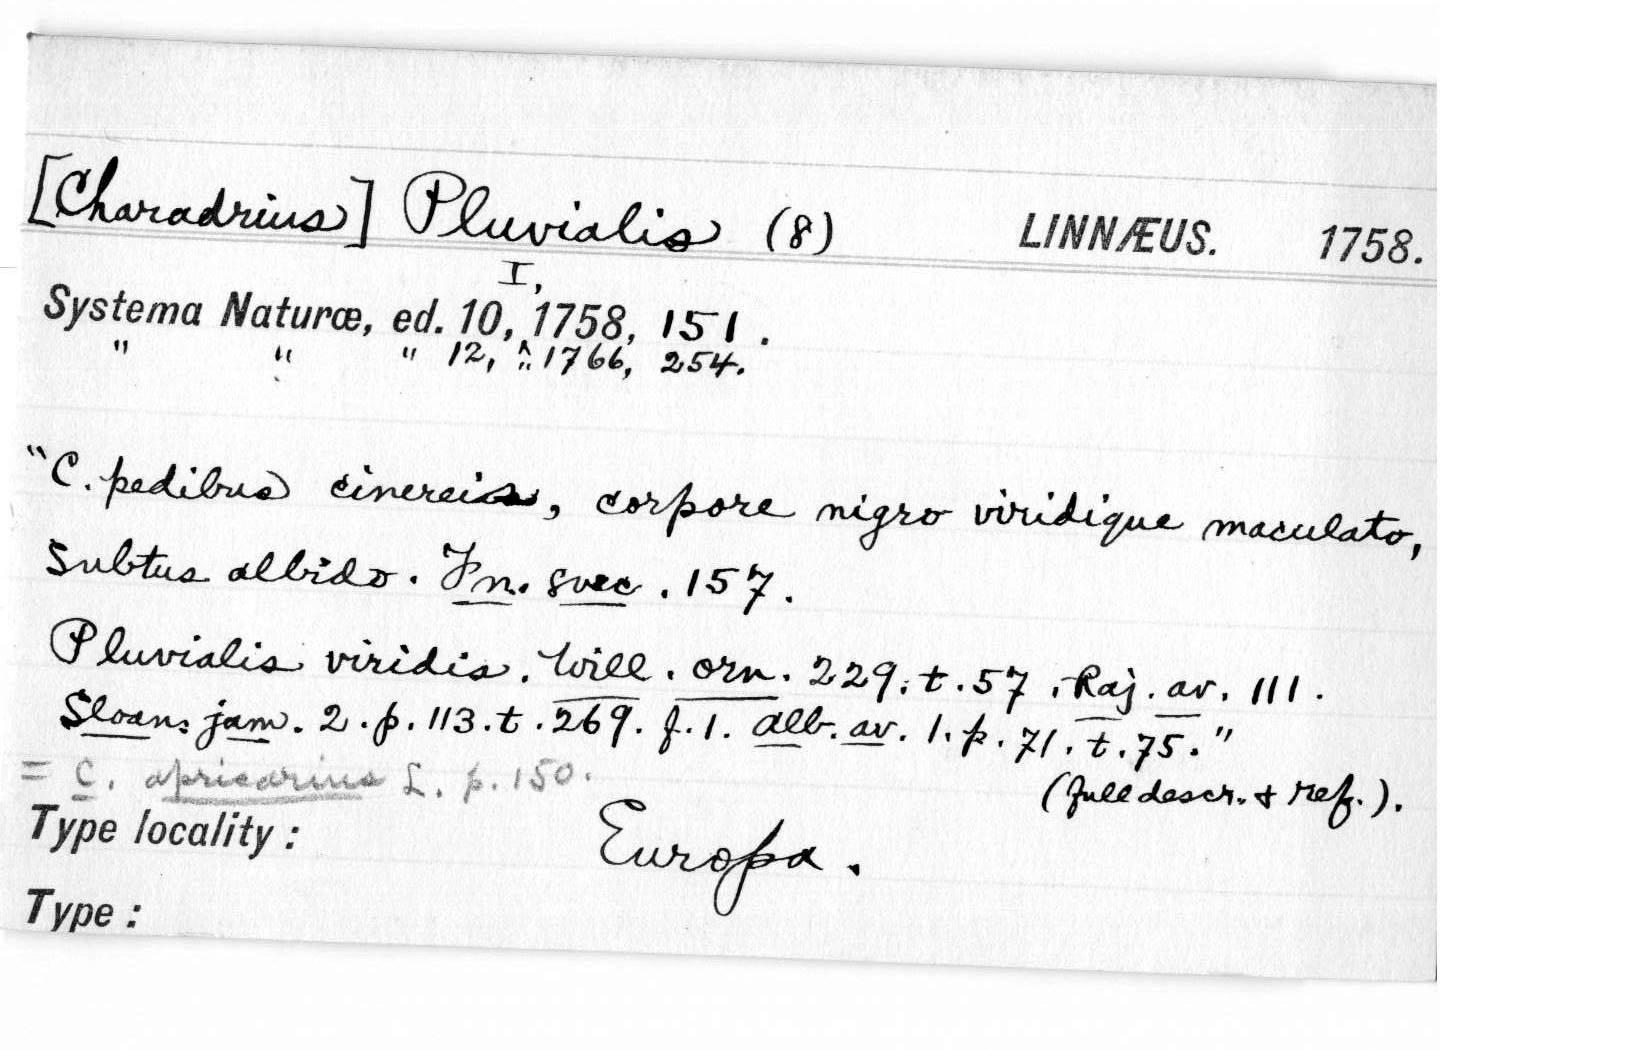 [Charadrius] Pluvialis (8) LINNÆUS. 1758.
I,
Systema Naturæ, ed. 10, 1758, 151.
" " " 12, " 1766, 254.
"C. pedibus cinereis, corpore nigro viridique maculato,
subtus albido. Fn. svec. 157.
Pluvialis viridis. Will. orn. 229. t. 57. Raj. av. 111.
Sloan. jam. 2. p. 113. t. 269. f. 1. Alb. av. 1. p. 71. t. 75."
= C. apricarius L. p. 150.
(full descr. & ref.).
Type locality: Europa.
Type: